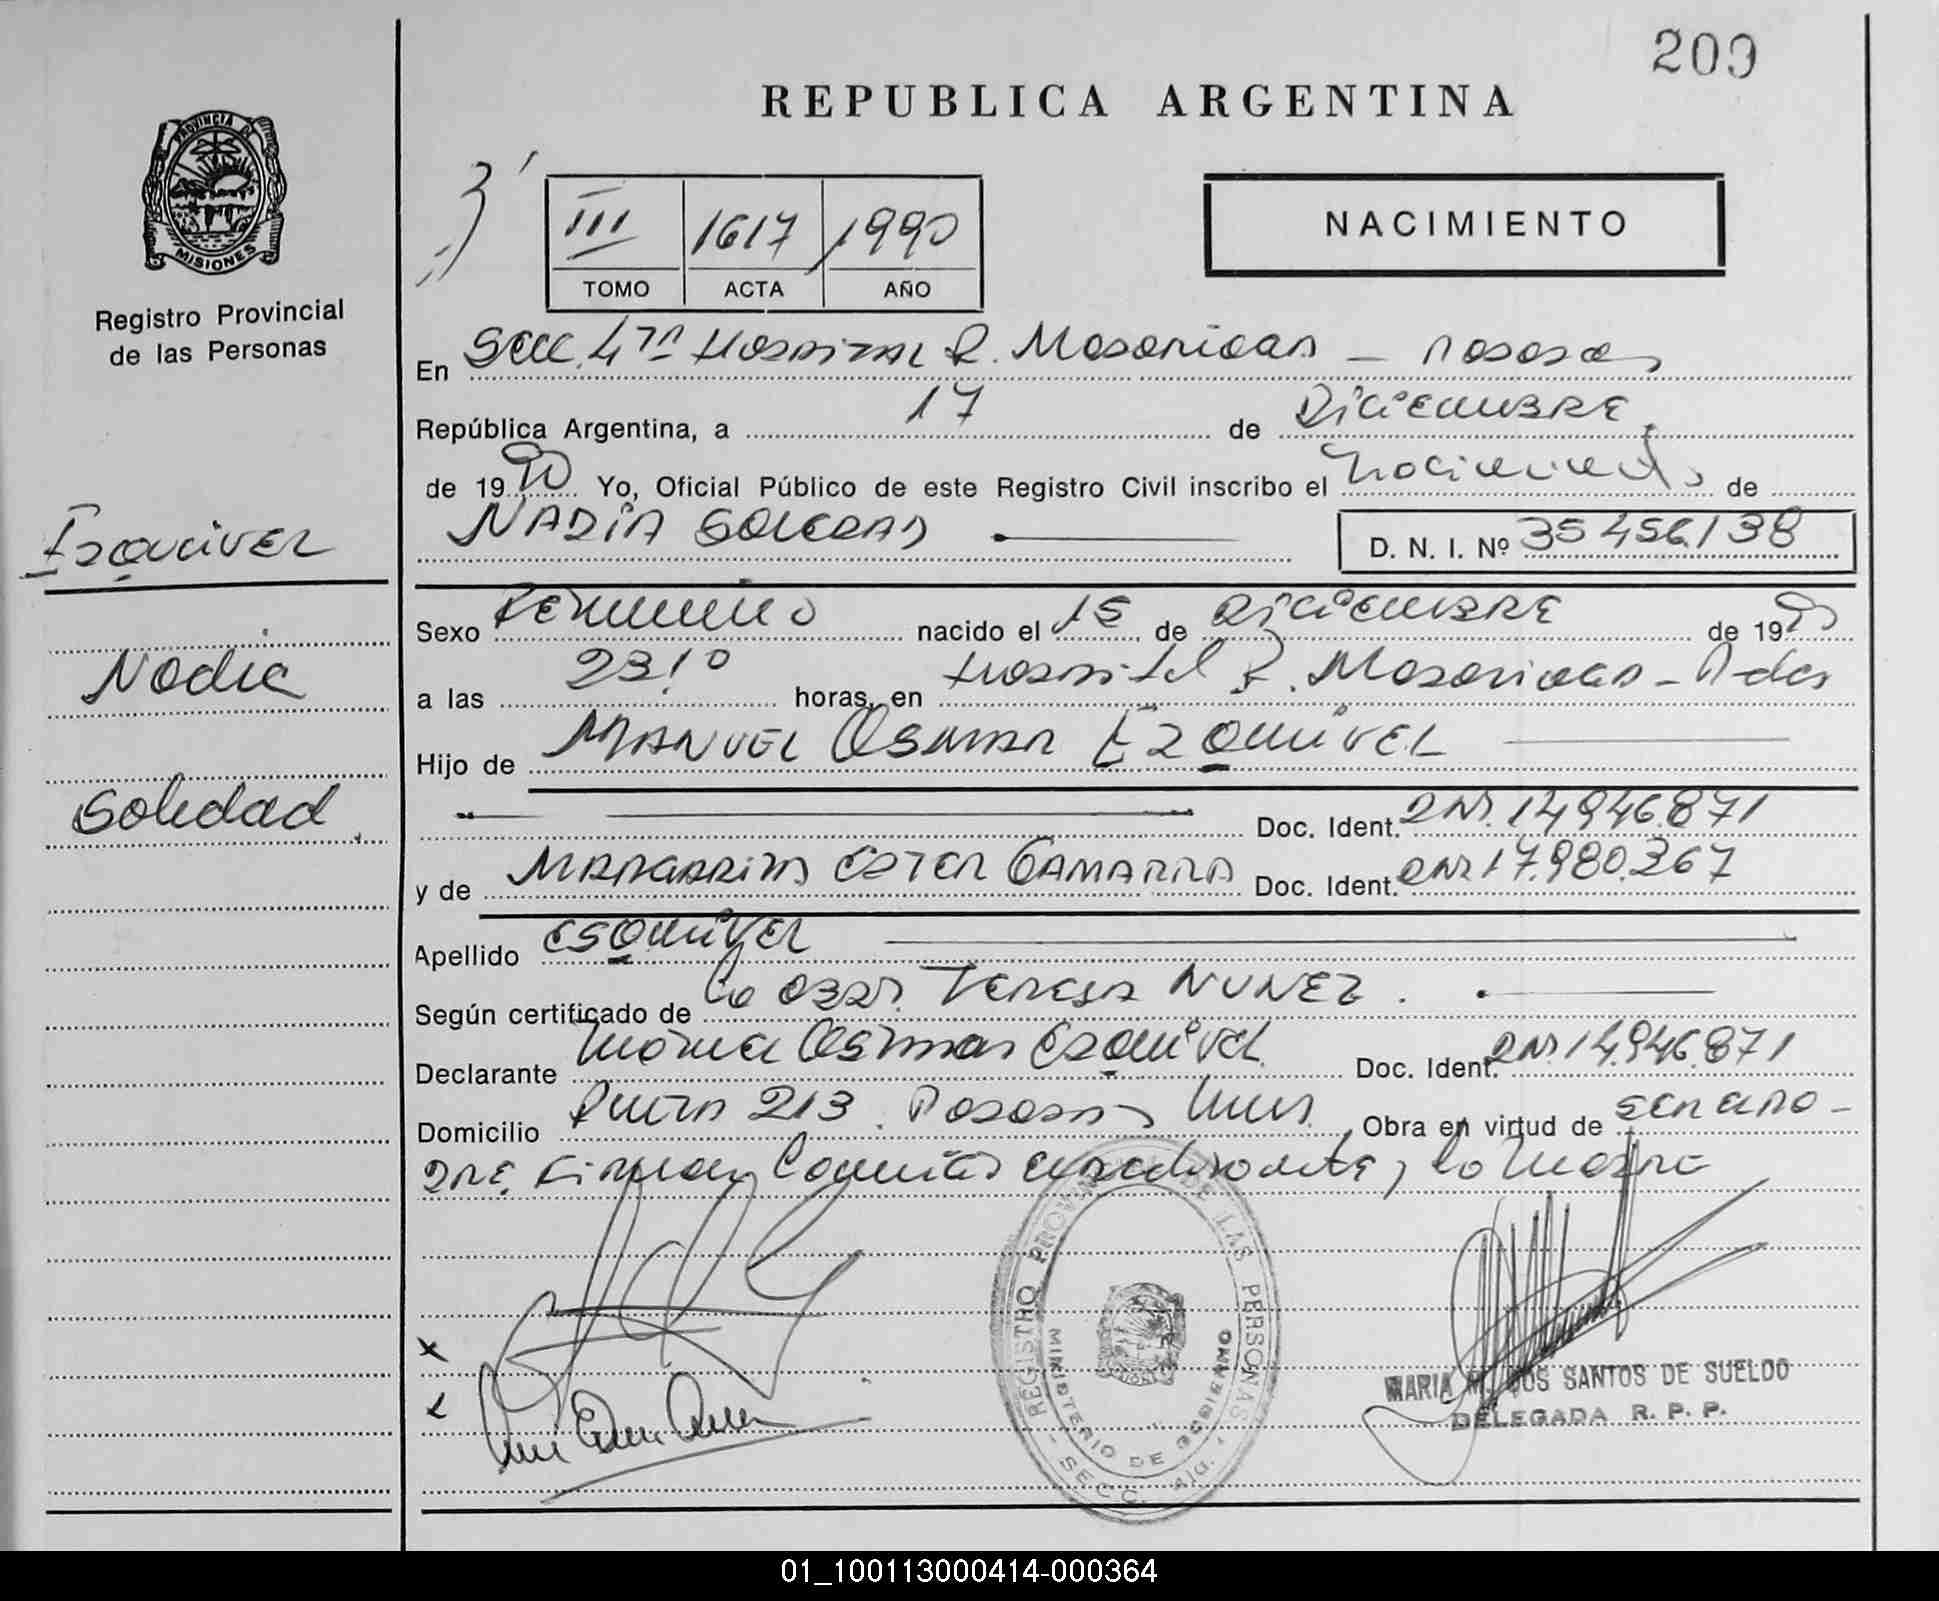 209
REPUBLICA ARGENTINA
PROVINCIA DE
MISIONES
Registro Provincial
de las Personas
III 1617 1990
TOMO ACTA AÑO
NACIMIENTO
En Secc. 4ta Hospital R. Madariaga – Posadas
República Argentina, a 17 de Diciembre
de 1990 Yo, Oficial Público de este Registro Civil inscribo el nacimiento de
NADIA SOLEDAD D. N. I. Nº 35456138
Esquivel
Nadia
Soledad
Sexo Femenino nacido el 15 de Diciembre de 1990
a las 23,10 horas, en Hospital R. Madariaga – Pdas
Hijo de MANUEL OSMAR ESQUIVEL
Doc. Ident. DNI. 14.946.871
y de MARGARITA ESTER GAMARRA Doc. Ident. DNI 17.980.367
Apellido ESQUIVEL
Según certificado de la Obst. Teresa NUNEZ.
Declarante Osmar Esquivel Doc. Ident. DNI 14.946.871
Domicilio Ruta 213. Posadas, Mnes Obra en virtud de ser el pa-
dre, Firman con el declarante, la madre
REGISTRO PROVINCIAL DE LAS PERSONAS
MINISTERIO DE GOBIERNO
SECC. 4ta.
MARIA M. DOS SANTOS DE SUELDO
DELEGADA R. P. P.
01_100113000414-000364